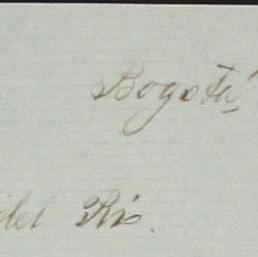 Bogotá
del Rio.